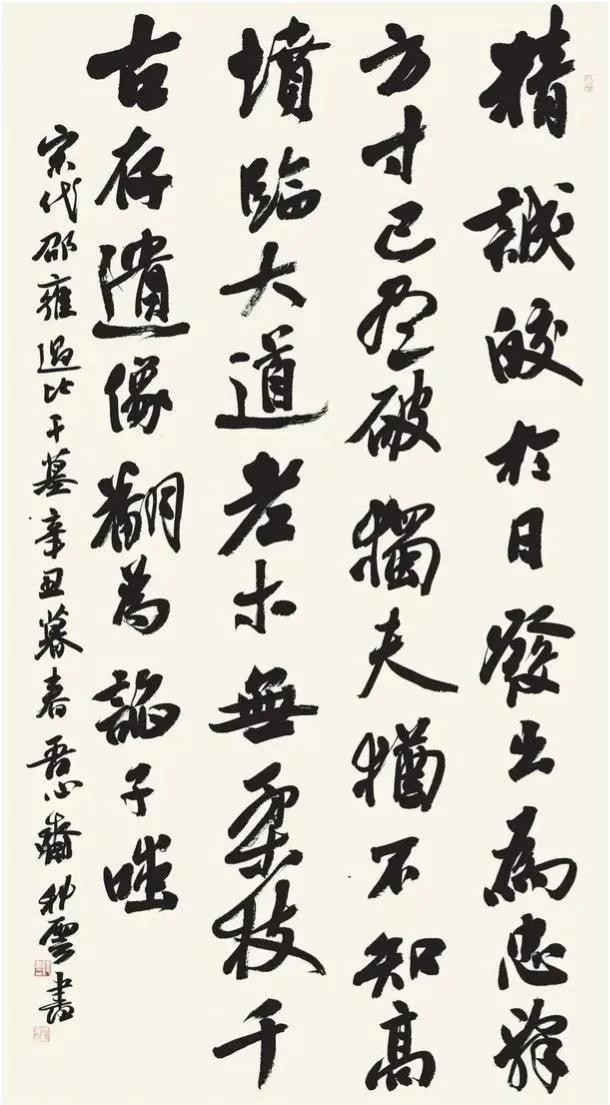 精誠皎於日發出為忠辭
方寸已盡破獨夫猶不知高
墳臨大道老木無柔枝千
古存遺像翻為諂子嗤
宋代邵雍過比干墓辛丑暮春吾心齋雲書